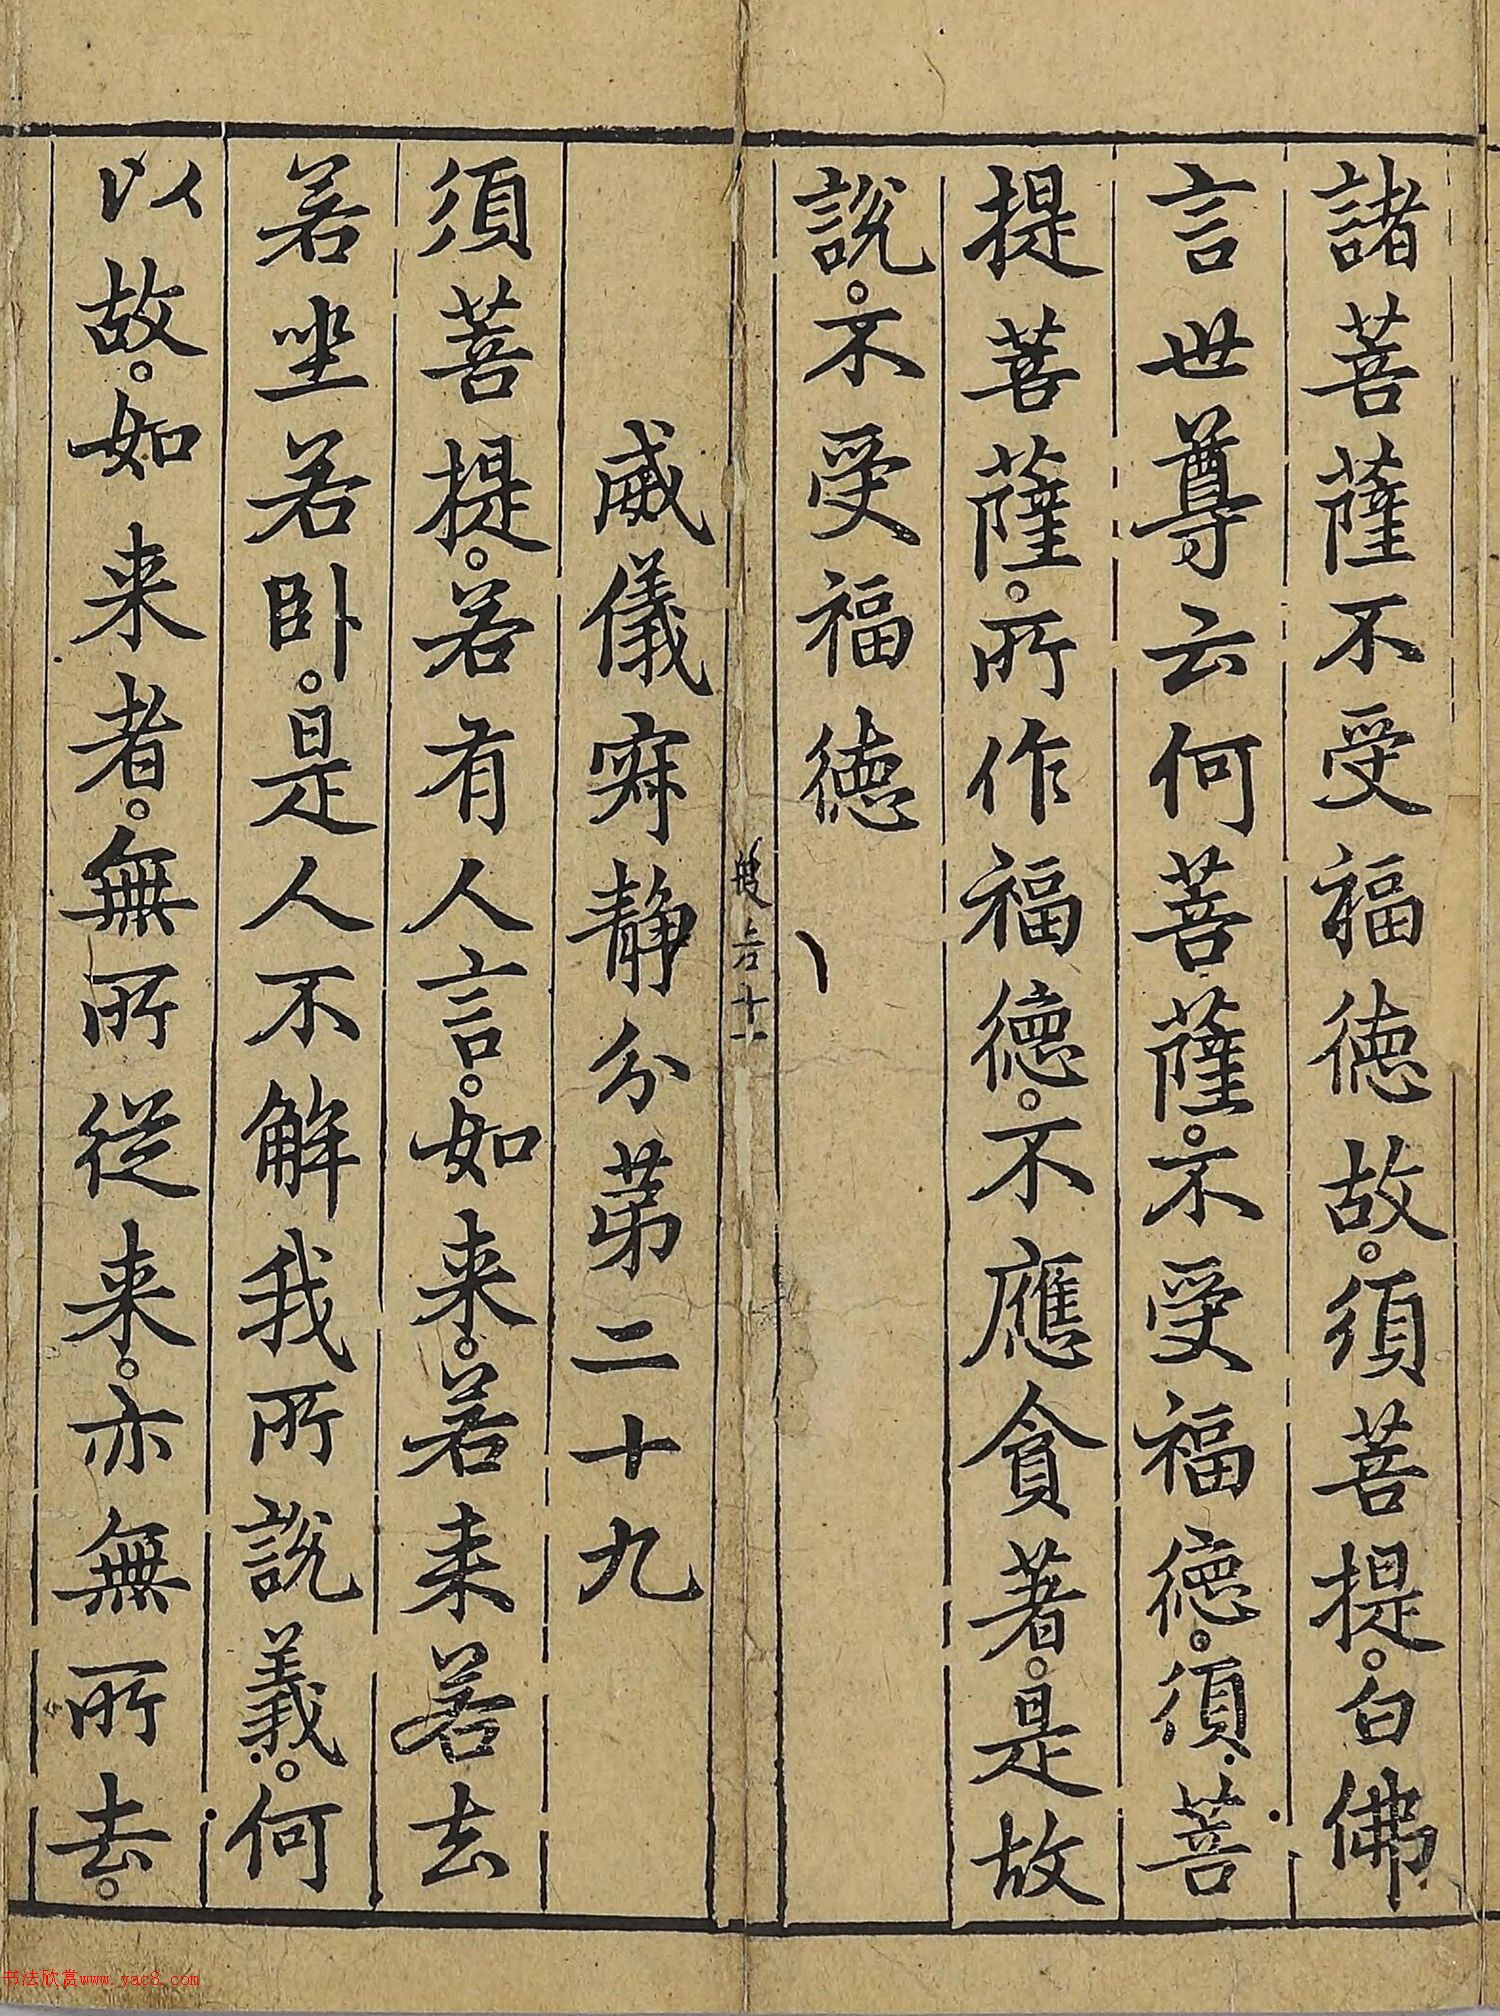 諸菩薩不受福德故。須菩提。白佛
言世尊云何菩薩。不受福德。須菩
提菩薩。所作福德。不應貪著。是故
說。不受福德
威儀寂靜分第二十九
須菩提。若有人言。如来。若来若去
若坐若卧。是人不解我所說義。何
以故。如来者。無所從来。亦無所去。
书法欣赏www.yac8.com